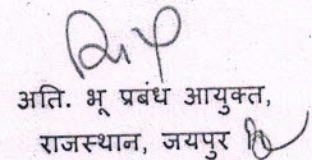 अति. भू प्रबंध आयुक्त,
राजस्थान, जयपुर